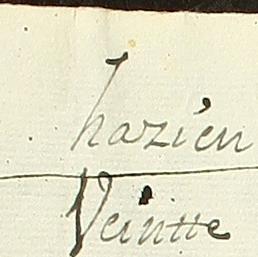 hazien
Veintte